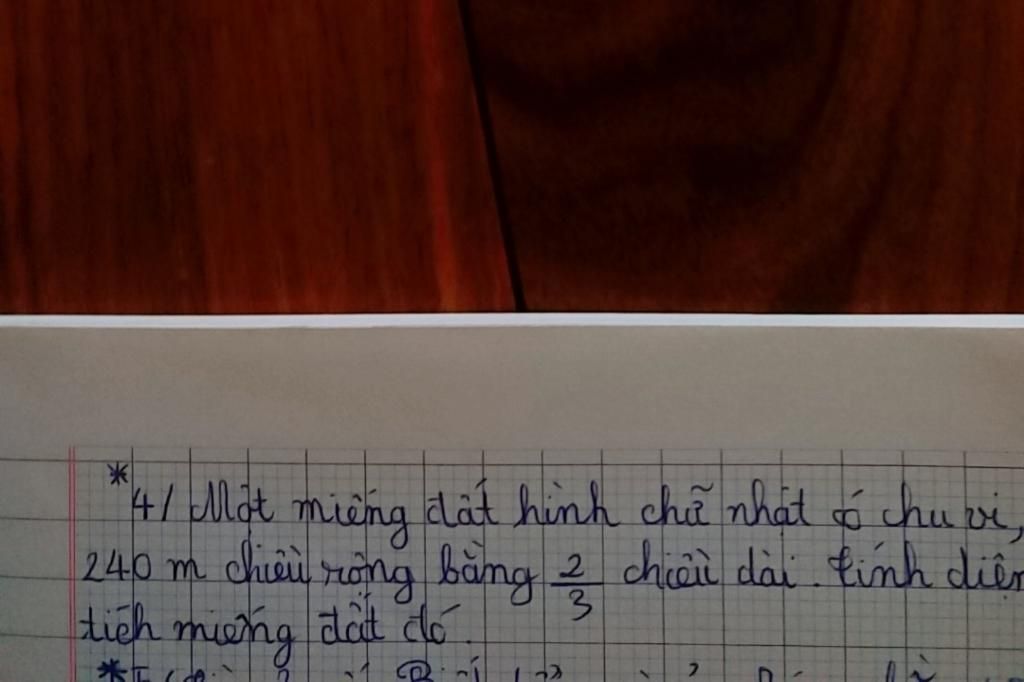 *4/ Một miếng đất hình chữ nhật có chu vi,
240 m chiều rộng bằng 2/3 chiều dài. tính diện
tích miếng đất đó.